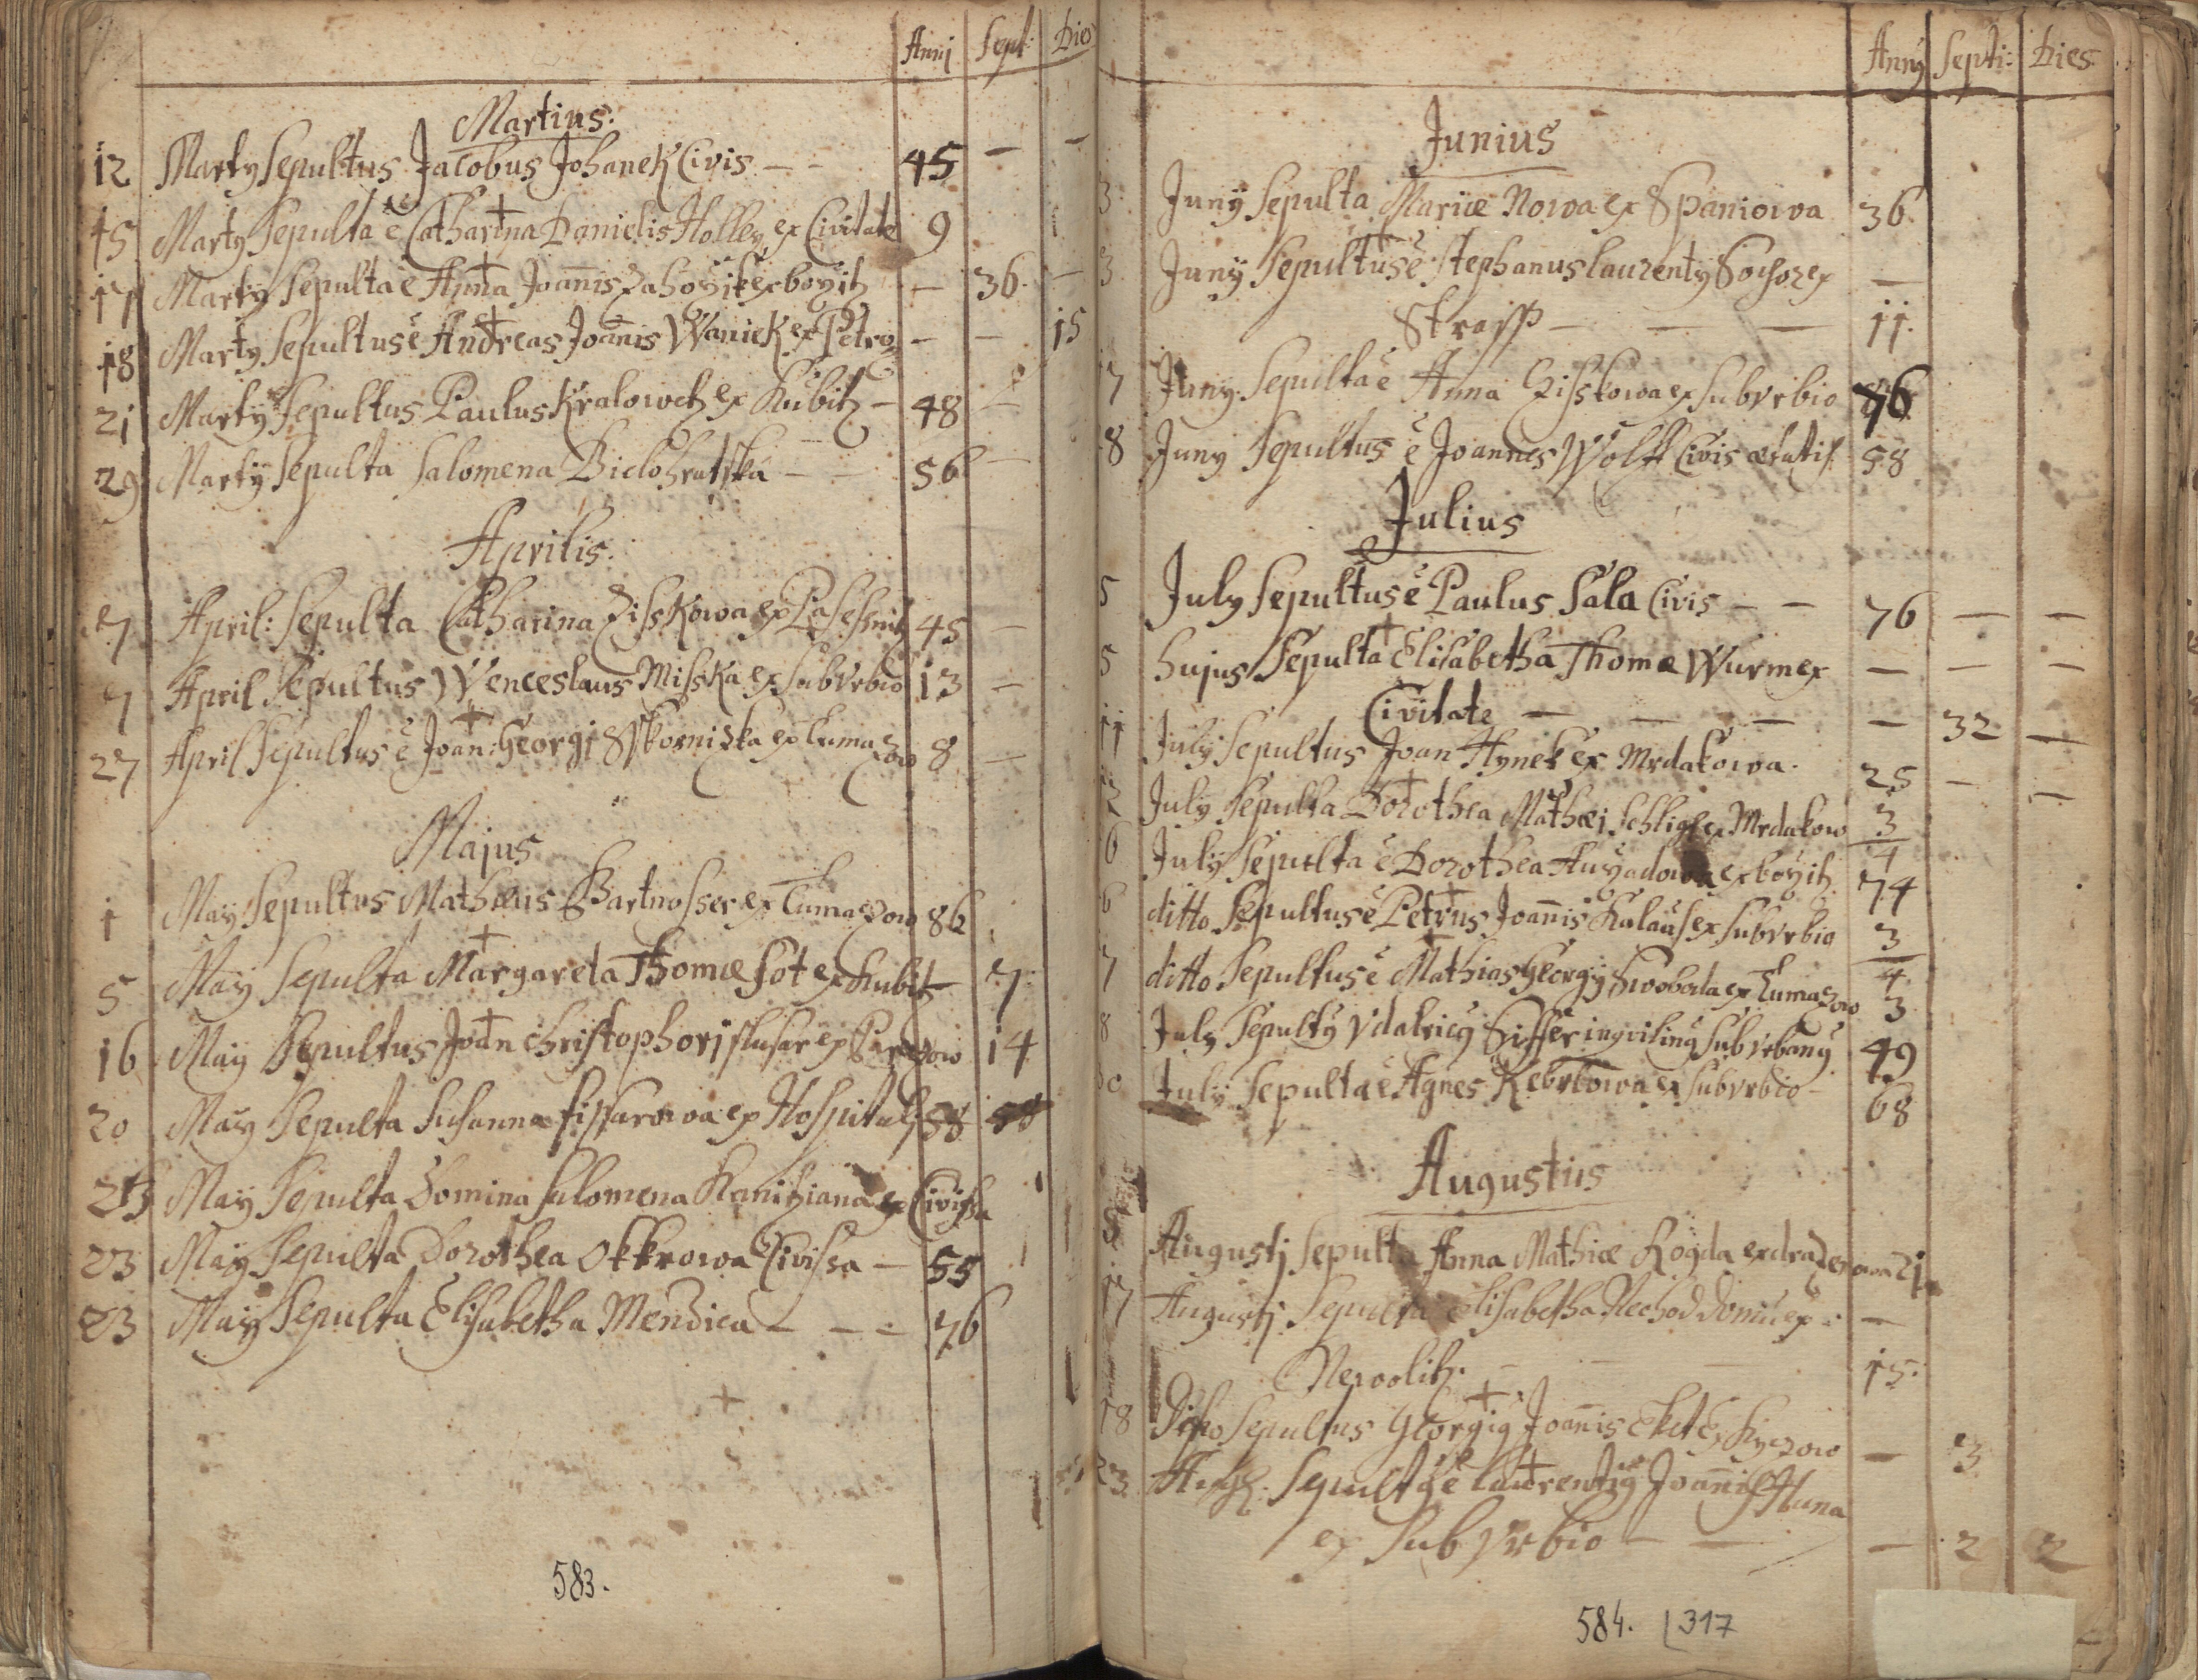 Annj Sept: Dies
Martius:
12 Martÿ Sepultus Jacobus Johanek Civis - - 45 - -
15 Martÿ Sepulta ĕ Catharina Danielis Holley ex Civitate 9
17 Martÿ Sepulta ĕ Anna Joannis ex boÿitz - 36. -
18 Martÿ Sepultus ĕ Andreas Joannis Waniek ex - - 15
21 Martÿ Sepultus Paulus Kralowetz ex Kubitz - 48 -
29 Martÿ Sepulta Salomena Bielohratska - 56 -
Aprilis:
7 April: Sepulta Catharina Zisskowa ex Pasessnitz 45 -
7 April Sepultus Wenceslaus Misska ex Subvrbio 13 -
27 April Sepultus ĕ Joan: Georgj ex Tumazow 8 -
Majus
1 Maÿ Sepultus Mathæus Bartnosser ex Tumazow 86
5 Maÿ Sepulta Margareta Thomæ Sot ex Kubitz 7
16 Maÿ Sepultus Joan Christophorj slusar ex 14
20 Maÿ Sepulta Susanna fissarowa ex Hospitalj 58 58
23 Maÿ Sepulta Domina Salomena Kanitziana ex Civissa
23 Maÿ Sepulta Dorothea Okkrowa Civissa - 55
23 Maÿ Sepulta Elisabetha Mendica - - - 76
583.
Annÿ Septi: Dies
Junius
3 Junÿ Sepulta Mariæ Nowa ex Spaniowa 36
3 Junÿ Sepultus ĕ Stephanus laurentÿ Sochor ex -
Strassp - - - 11.
7 Junÿ Sepulta ĕ Anna Czisskowa ex Subvrbio 76
8 Junÿ Sepultus ĕ Joannes Wolff Civis ætatis 58
Julius
5 Julÿ Sepultus ĕ Paulus Sala Civis - - 76 - -
5 hujus Sepulta Elisabetha Thomæ Wurm ex - - -
Civitate - - - - 32 -
11 Julÿ Sepultus Joan Hynek ex Mrdakowa. 25 - -
2 Julÿ Sepulta Dorothea Mathæj Schligl ex Mrdakow 3/4
6 Julÿ Sepulta ĕ Dorothea ex boÿitz 74
6 ditto Sepultus ĕ Petrus Joannis Kalaus ex Subvrbio 3/4
7 ditto Sepultus ĕ Mathias Georgÿ Swoboda ex Tumazow 3
8 Julÿ Sepultÿ Vdalricÿ Siffer inqvilinÿ Subvrbanÿ 49
30 Julÿ Sepulta ĕ Agnes Kebrlowa ex Subvrbio - 68
Augustus
8 Augustj Sepulta Anna Mathiæ Rogda ex 21
17 Augustj Sepulta Elisabetha Nechod Domu ex: -
Newolitz. - - - 15.
18 Ditto Sepultus Georgiÿ Joannis Ektl Ex Kyczow - 3
23 Aug: Sepultÿ ĕ laurentiÿ Joannis Huna
ex Subvrbio - - - 2 2
584. 317